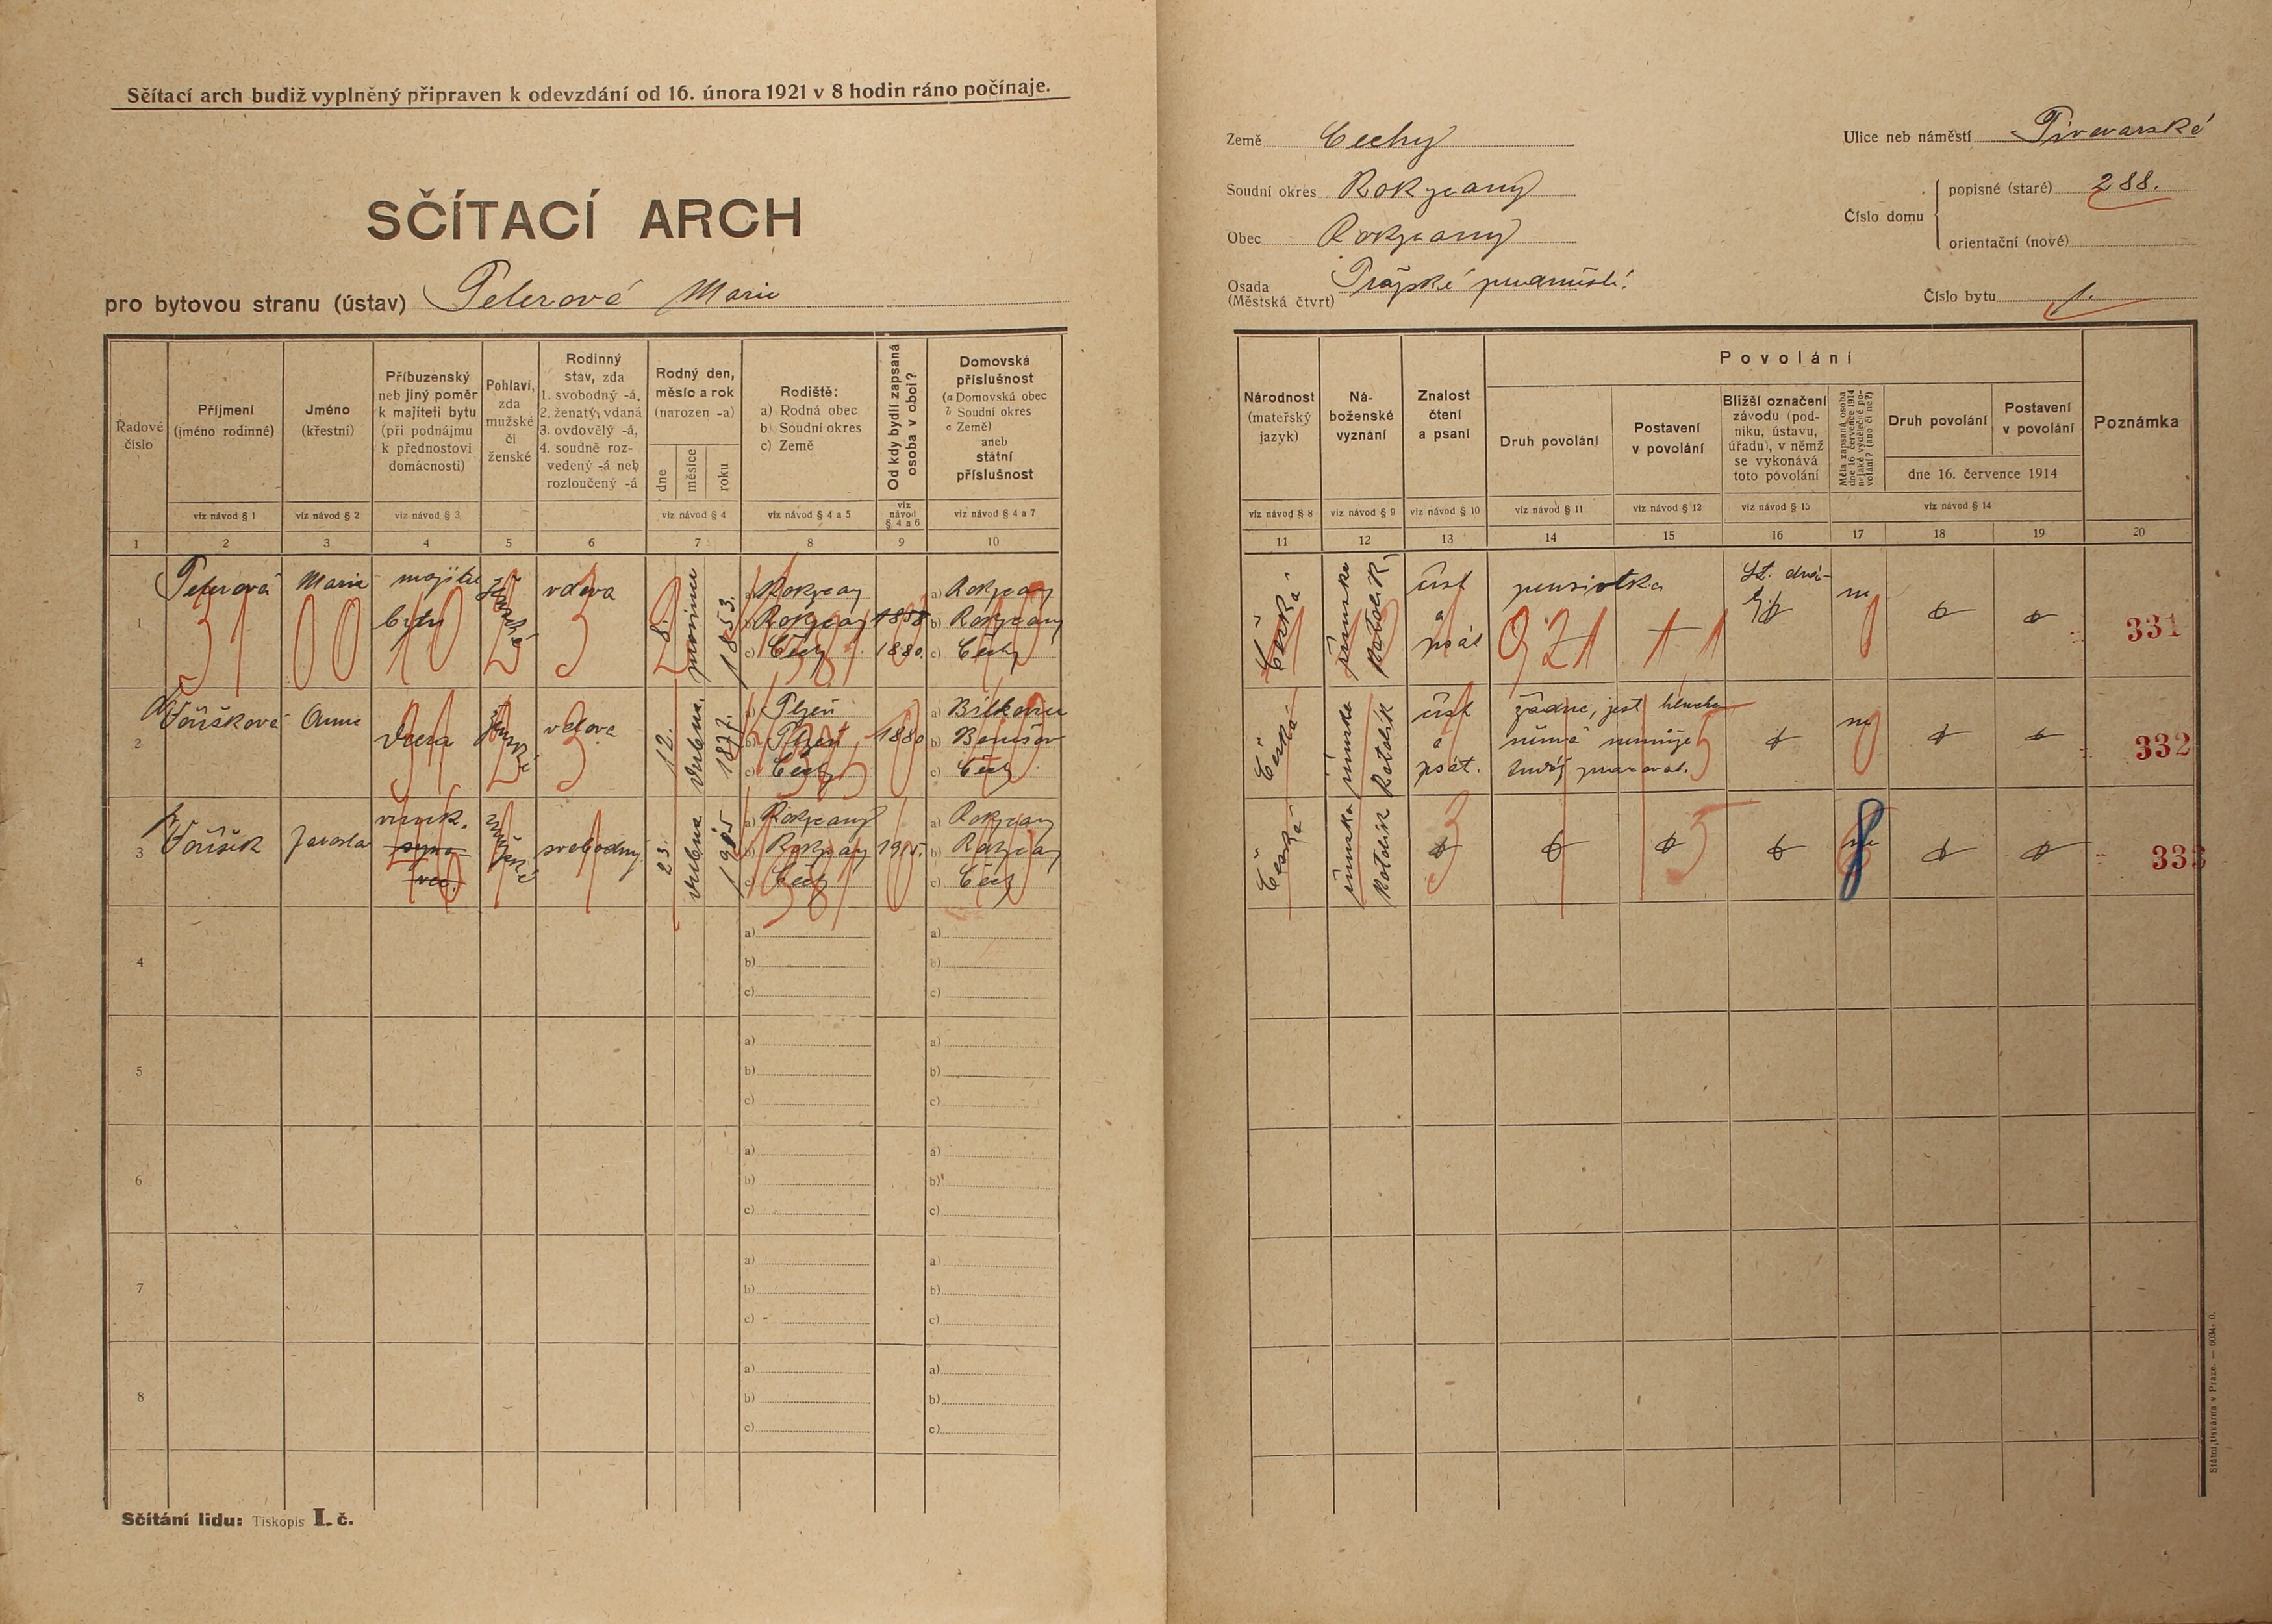 Sčítací arch budiž vyplněný připraven k odevzdání od 16. února 1921 v 8 hodin ráno počínaje.
SČÍTACÍ ARCH
pro bytovou stranu (ústav) Peterová Marie
Země Čechy
Soudní okres Rokycany
Obec Rokycany
Osada
(Městská čtvrť) Pražské předměstí.
Ulice neb náměstí Pivovarské
Číslo domu
popisné (staré) 288.
orientační (nové)
Číslo bytu 1.
Řadové číslo
Příjmení
(jméno rodinné)
Jméno
(křestní)
Příbuzenský
neb jiný poměr
k majiteli bytu
(při podnájmu
k přednostovi
domácnosti)
Pohlaví,
zda
mužské
či
ženské
Rodinný
stav, zda
1. svobodný -á,
2. ženatý, vdaná
3. ovdovělý -á,
4. soudně roz-
vedený -á neb
rozloučený -á
Rodný den,
měsíc a rok
(narozen -a)
dne
měsíce
roku
Rodiště:
a) Rodná obec
b) Soudní okres
c) Země
Od kdy bydlí zapsaná
osoba v obci?
Domovská
příslušnost
(a Domovská obec
b Soudní okres
c Země)
aneb
státní
příslušnost
viz návod § 1
viz návod § 2
viz návod § 3
viz návod § 4
viz návod § 4 a 5
viz
návod
§ 4 a 6
viz návod § 4 a 7
1 2 3 4 5 6 7 8 9 10
Národnost
(mateřský
jazyk)
Ná-
boženské
vyznání
Znalost
čtení
a psaní
Povolání
Druh povolání
Postavení
v povolání
Bližší označení
závodu (pod-
niku, ústavu,
úřadu), v němž
se vykonává
toto povolání
Měla zapsaná osoba
dne 16. července 1914
nějaké výdělečné po-
volání? (ano či ne?)
Druh povolání
Postavení
v povolání
dne 16. července 1914
Poznámka
viz návod § 8
viz návod § 9
viz návod § 10
viz návod § 11
viz návod § 12
viz návod § 13
viz návod § 14
11 12 13 14 15 16 17 18 19 20
1
Peterová
Marie
majitel
bytu
ženské
vdova
8.
prosince
1853.
a) Rokycany
b) Rokycany
c) Čechy
1858
1880.
a) Rokycany
b) Rokycany
c) Čechy
Česká
římsko
katolik
číst
a
psát
pensistka
ne
31 00 10 2 3
921
331
2
Toušková
Anna
dcera
ženské
vdova
12.
dubna
1877.
a) Plzeň
b) Plzeň
c) Čechy
1880
a)
b) Benešov
c) Čechy
Česká
římsko
katolik
číst
a
psát.
žádné, jest hlucho
němá nemůže
pracovat.
ne
332
3
Toušek
Jarosla
vnuk.
syna
mužské
svobodný
23.
dubna
1915
a) Rokycany
b) Rokycany
c) Čechy
1915.
a) Rokycany
b) Rokycany
c) Čechy
Česká
římsko
katolik
ne
333
4
a)
b)
c)
a)
b)
c)
5
a)
b)
c)
a)
b)
c)
6
a)
b)
c)
a)
b)
c)
7
a)
b)
c)
a)
b)
c)
8
a)
b)
c)
a)
b)
c)
Sčítání lidu: Tiskopis I. č.
Státní tiskárna v Praze. — 6034-0.